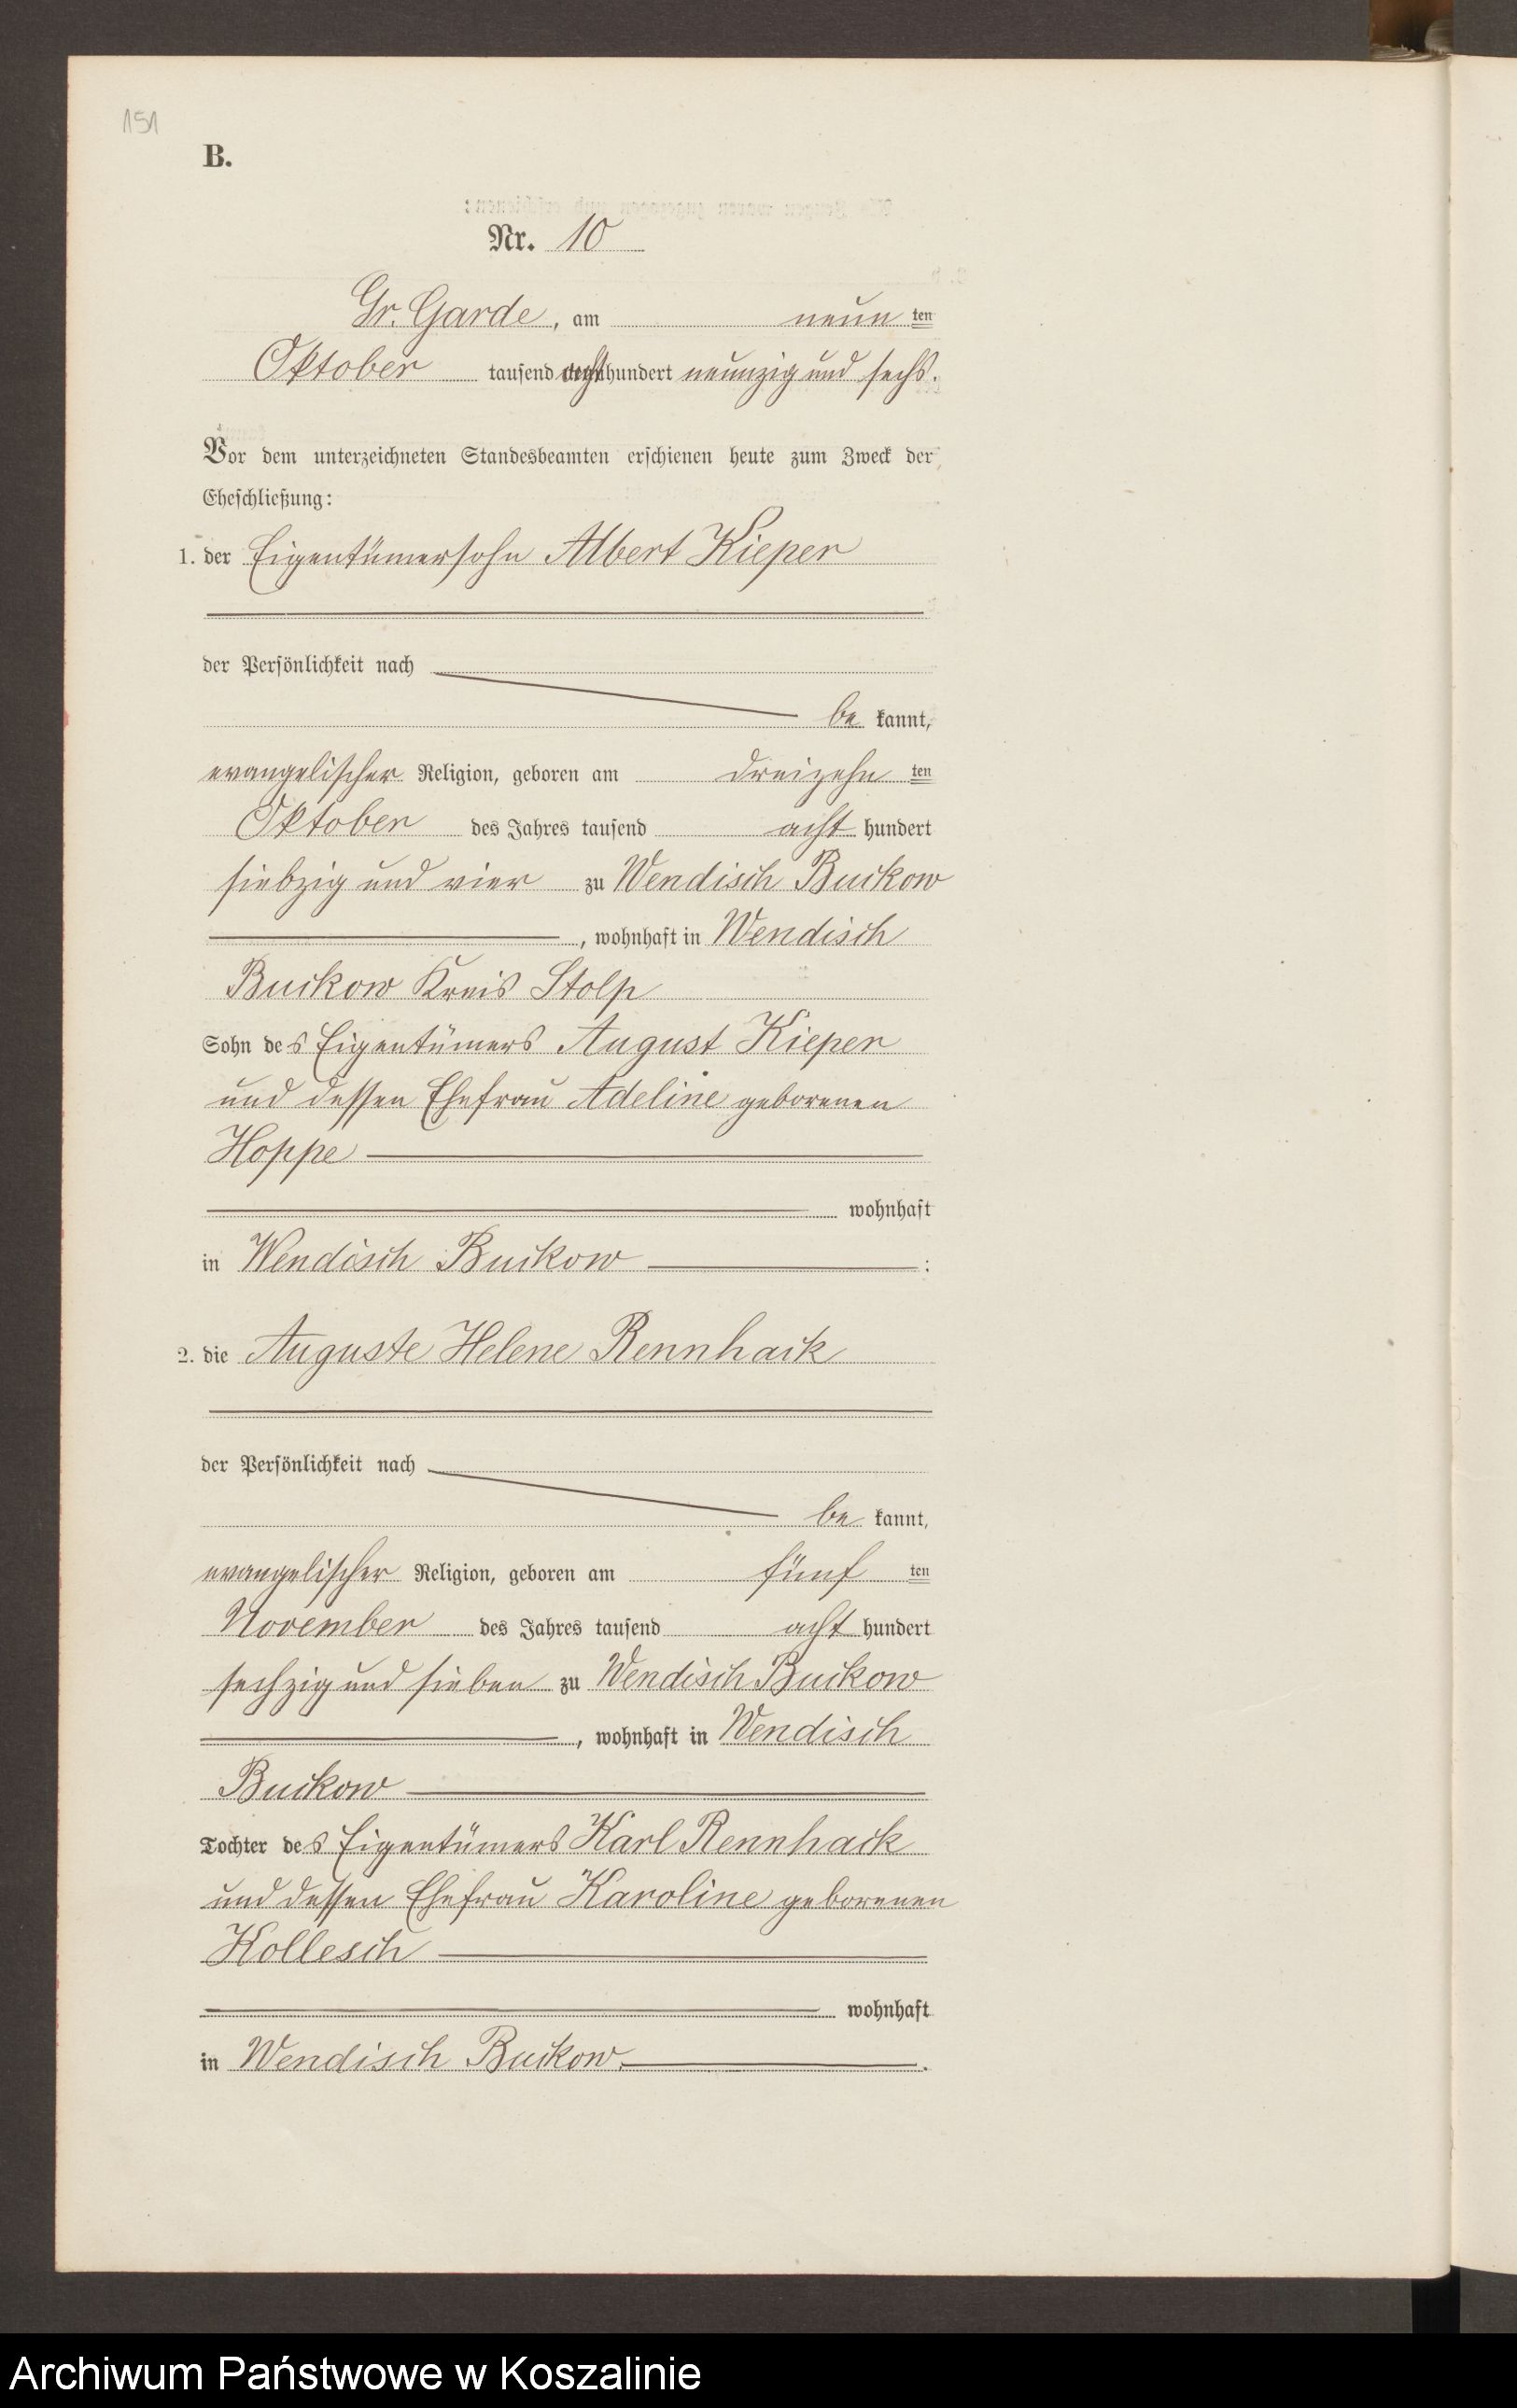 151
B.
Nr. 10
Gr. Garde, am neun ten
Oktober tausend acht hundert neunzig und sechs.
Vor dem unterzeichneten Standesbeamten erschienen heute zum Zweck der
Eheschließung:
1. der Eigentümersohn Albert Kieper
der Persönlichkeit nach
be kannt,
evangelischer Religion, geboren am dreizehn ten
Oktober des Jahres tausend acht hundert
siebzig und vier zu Wendisch Buckow
, wohnhaft in Wendisch
Buckow Kreis Stolp
Sohn des Eigentümers August Kieper
und dessen Ehefrau Adeline geborenen
Hoppe
wohnhaft
in Wendisch Buckow :
2. die Auguste Helene Rennhack
der Persönlichkeit nach
be kannt,
evangelischer Religion, geboren am fünf ten
November des Jahres tausend acht hundert
sechzig und sieben zu Wendisch Buckow
, wohnhaft in Wendisch
Buckow
Tochter des Eigentümers Karl Rennhack
und dessen Ehefrau Karoline geborenen
Kollesch
wohnhaft
in Wendisch Buckow .
Archiwum Państwowe w Koszalinie